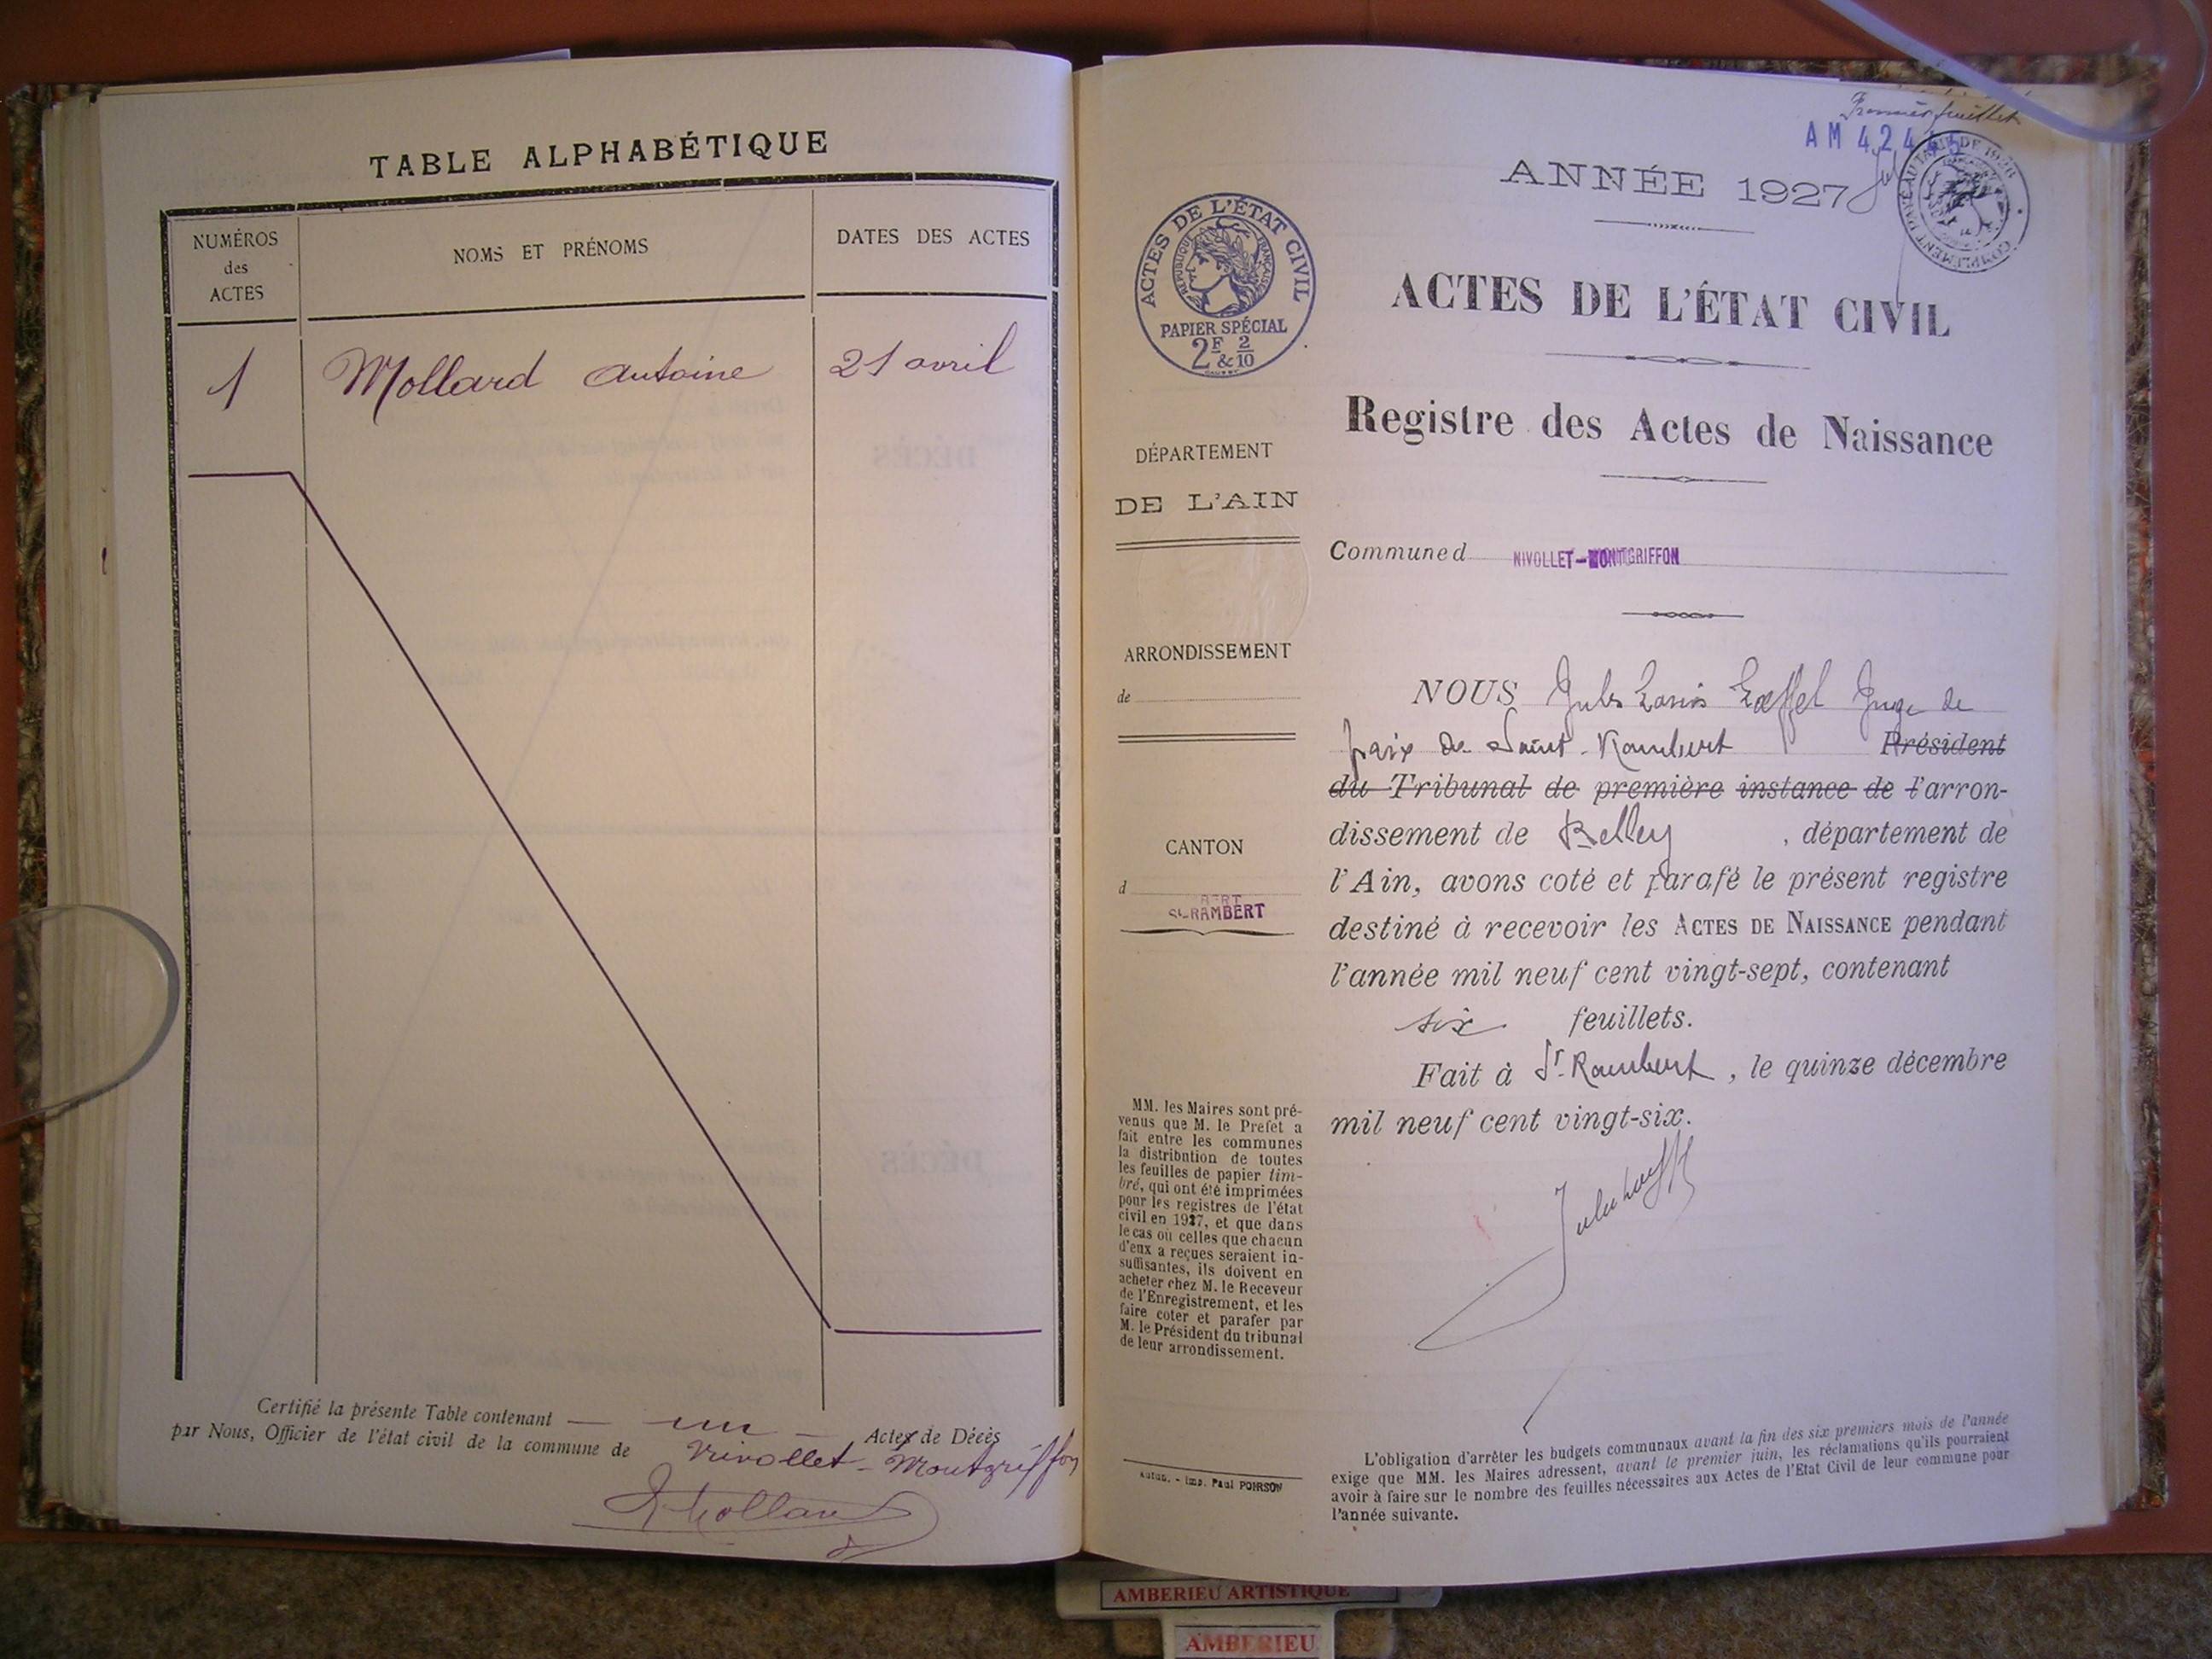 TABLE ALPHABÉTIQUE
NUMÉROS
des
ACTES
NOMS ET PRÉNOMS
DATES DES ACTES
1 Mollard Antoine 21 avril
Certifié la présente Table contenant — un — Actes de Décès
par Nous, Officier de l'état civil de la commune de Nivollet-Montgriffon
Premier feuillet
ANNÉE 1927
ACTES DE L'ÉTAT CIVIL
RÉPUBLIQUE FRANÇAISE
PAPIER SPÉCIAL
2F & 2/10
ACTES DE L'ÉTAT CIVIL
Registre des Actes de Naissance
DÉPARTEMENT
DE L'AIN
Commune d NIVOLLET-MONTGRIFFON
ARRONDISSEMENT
de
CANTON
d
St-RAMBERT
NOUS Jules Louis Lœffel Juge de
paix de Saint-Rambert Président
du Tribunal de première instance de l'arron-
dissement de Belley, département de
l'Ain, avons coté et parafé le présent registre
destiné à recevoir les ACTES DE NAISSANCE pendant
l'année mil neuf cent vingt-sept, contenant
six feuillets.
Fait à St-Rambert, le quinze décembre
mil neuf cent vingt-six.
MM. les Maires sont pré-
venus que M. le Prefet a
fait entre les communes
la distribution de toutes
les feuilles de papier tim-
bré, qui ont été imprimées
pour les registres de l'état
civil en 1927, et que dans
le cas où celles que chacun
d'eux a reçues seraient in-
suffisantes, ils doivent en
acheter chez M. le Receveur
de l'Enregistrement, et les
faire coter et parafer par
M. le Président du tribunal
de leur arrondissement.
Autun. - Imp. Paul POIRSON
L'obligation d'arrêter les budgets communaux avant la fin des six premiers mois de l'année
exige que MM. les Maires adressent, avant le premier juin, les réclamations qu'ils pourraient
avoir à faire sur le nombre des feuilles nécessaires aux Actes de l'Etat Civil de leur commune pour
l'année suivante.
AMBERIEU ARTISTIQUE
AMBERIEU